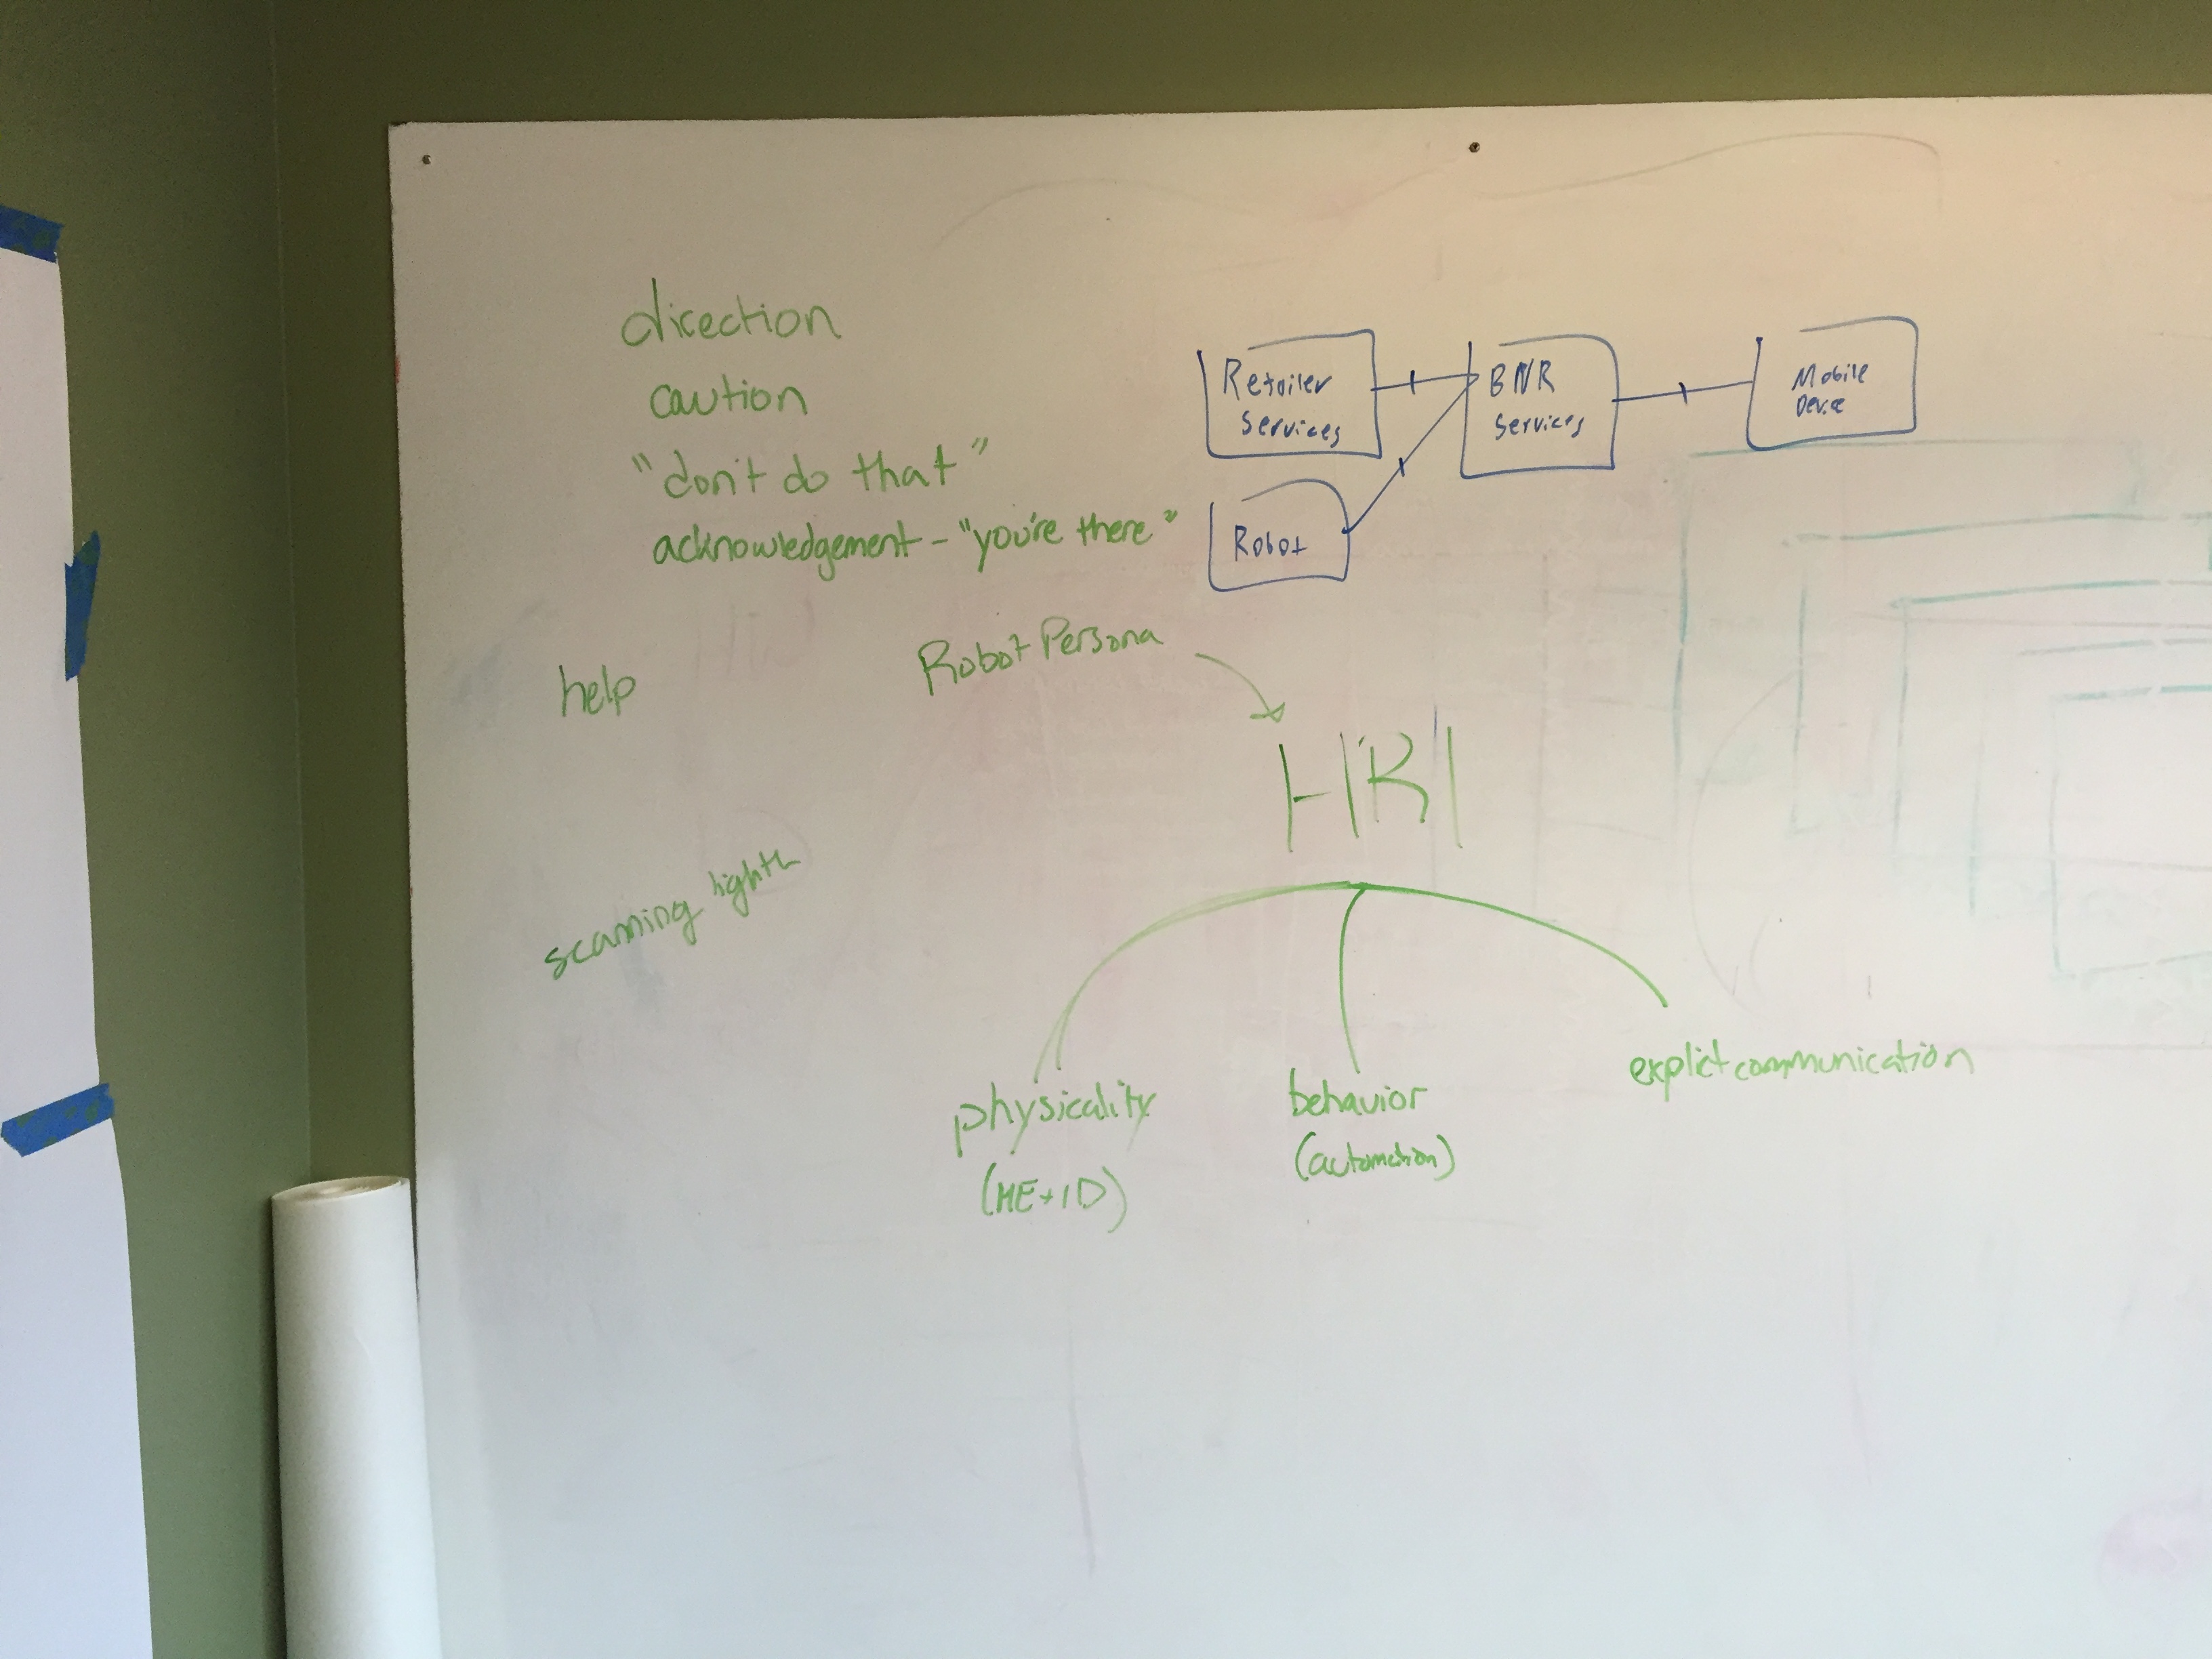 direction
caution
"don't do that"
acknowledgement - "you're there"
help
scanning
Retailer
Services
BNR
Services
Mobile
Device
Robot
Robot Persona
HRI
physicality
(ME+ID)
behavior
(automation)
explict communication